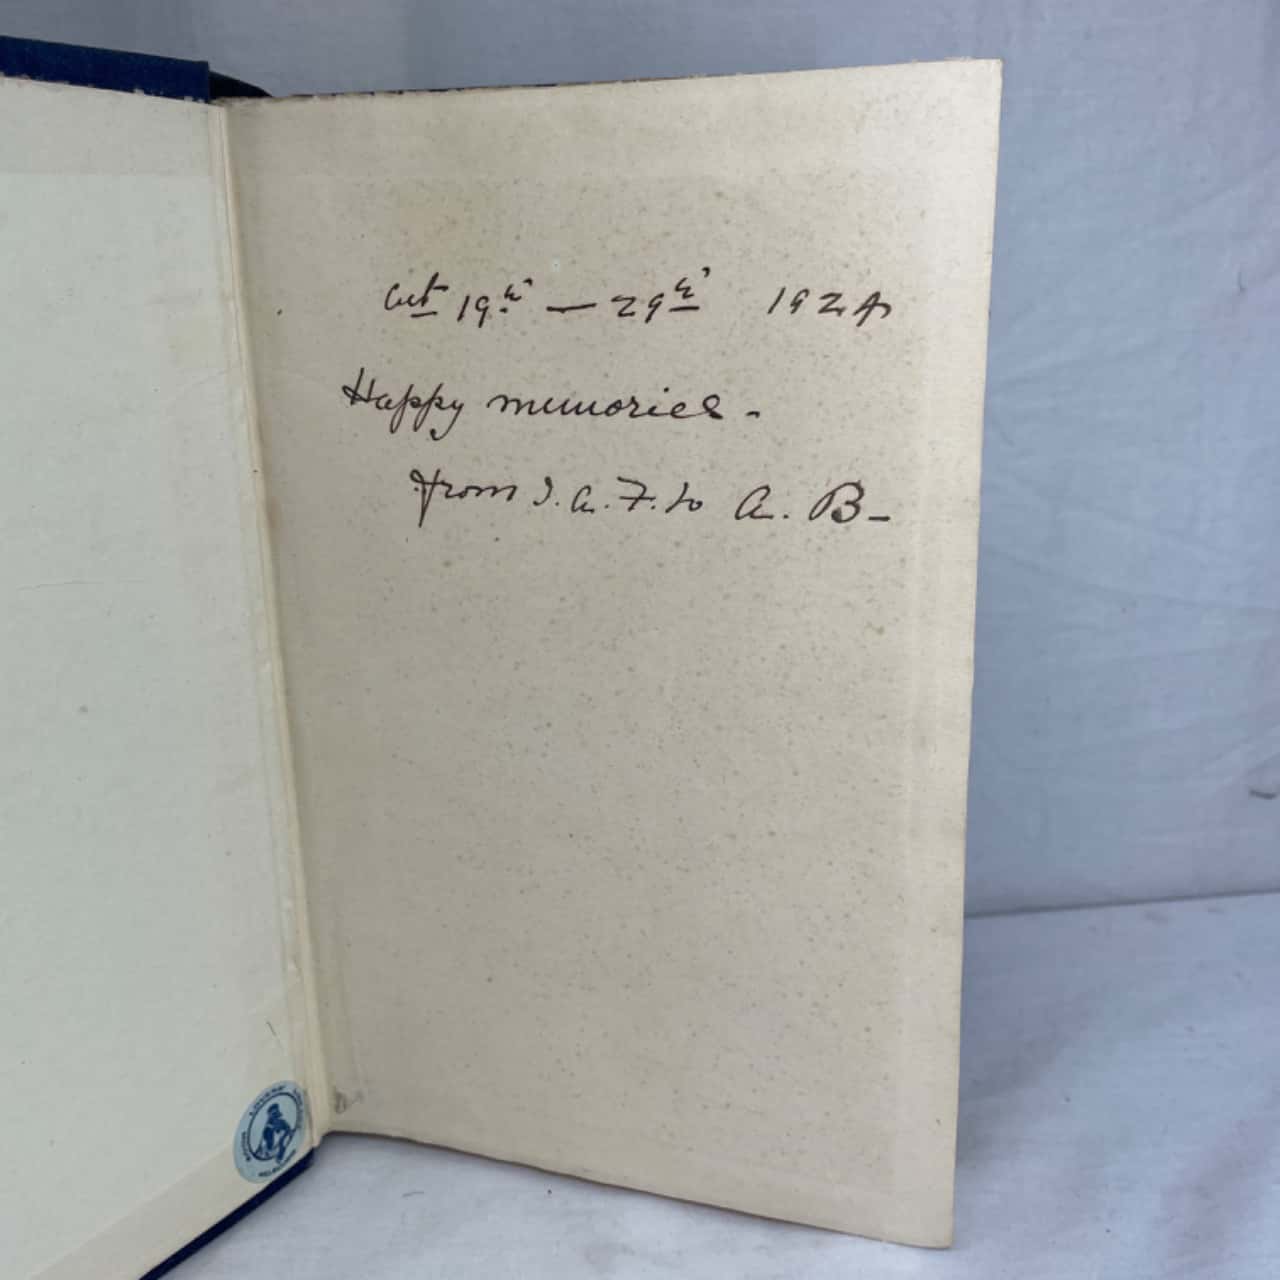 Oct 19th — 29th 1924
Happy memories -
from I. A. F. to A. B -